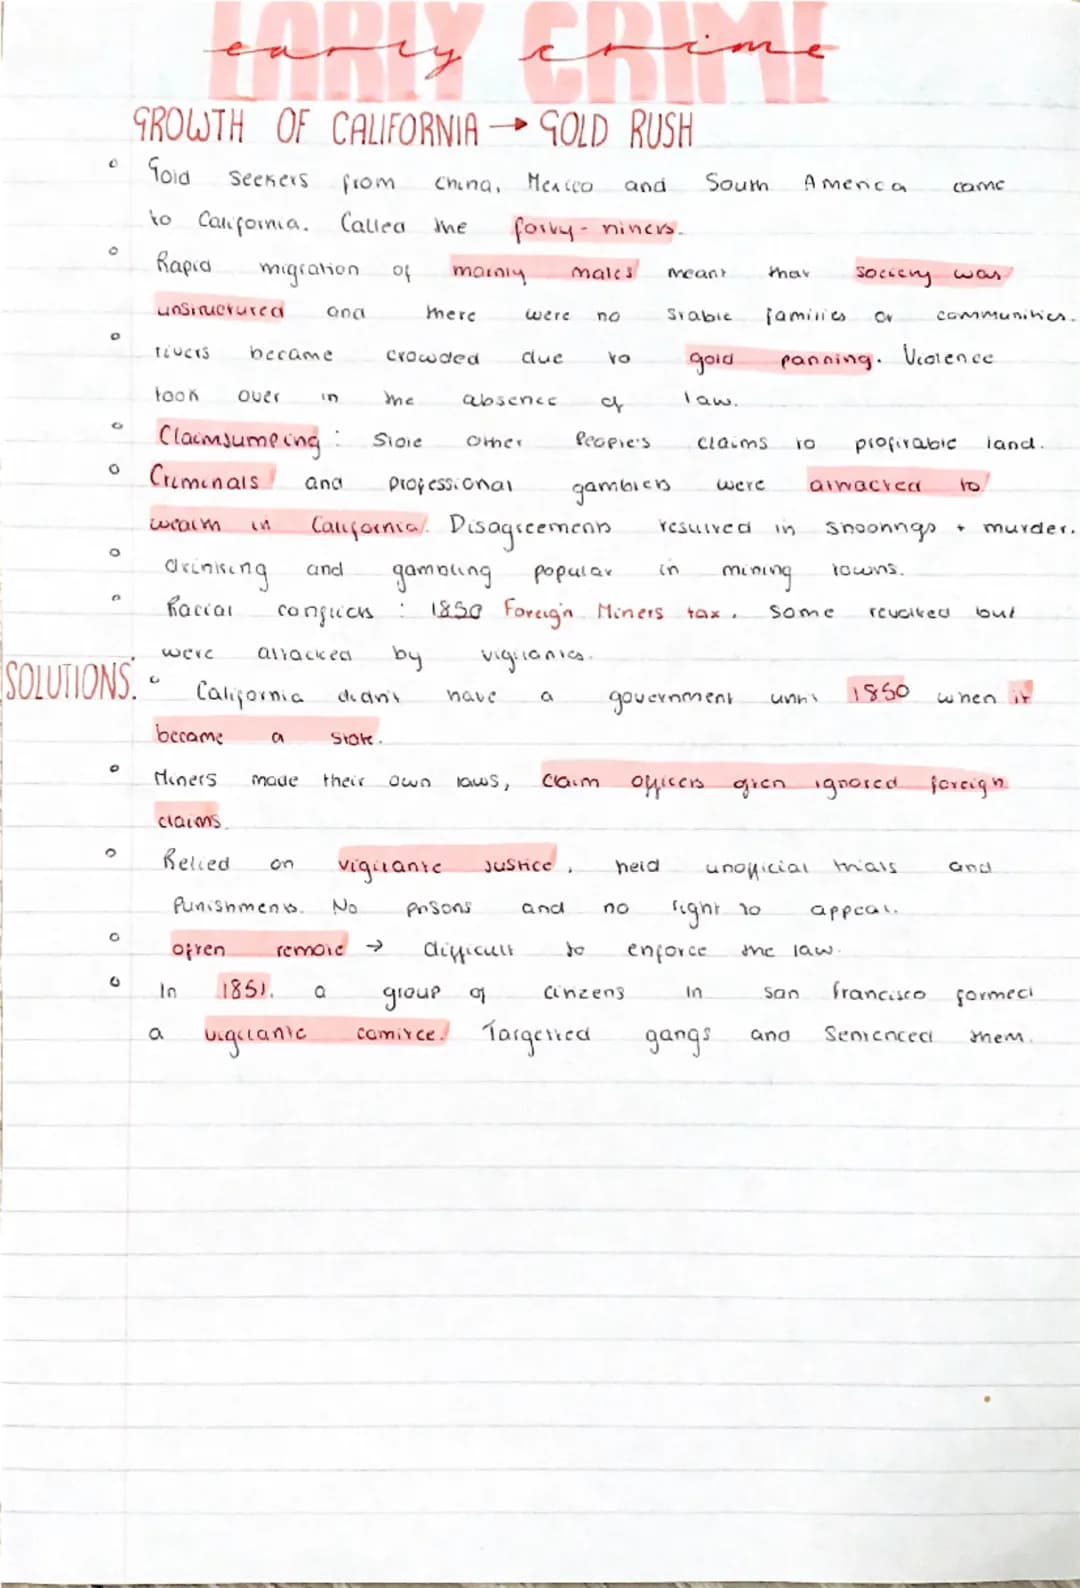 EARLY CRIME
early crime
GROWTH OF CALIFORNIA → GOLD RUSH
Gold seekers from China, Mexico and South America came
to California. Called the forty-niners.
Rapid migration of mainly males meant that society was
unstructured and there were no stable families or communities.
rivers became crowded due to gold panning. Violence
took over in the absence of law.
Claimjumping: Stole other People's claims to profitable land.
Criminals and professional gamblers were attracted to
wealth in California. Disagreements resulted in shootings + murder.
drinking and gambling popular in mining towns.
Racial conflicts : 1850 Foreign Miners tax, Some revolted but
were attacked by vigilantes.
SOLUTIONS:
California didn't have a government until 1850 when it
became a state.
Miners made their own laws, claim officers often ignored foreign
claims.
Relied on vigilante justice, held unofficial trials and
Punishments. No prisons and no right to appeal.
often remote → difficult to enforce the law.
In 1851, a group of citizens in San Francisco formed
a vigilante comitee. Targetted gangs and Sentenced them.